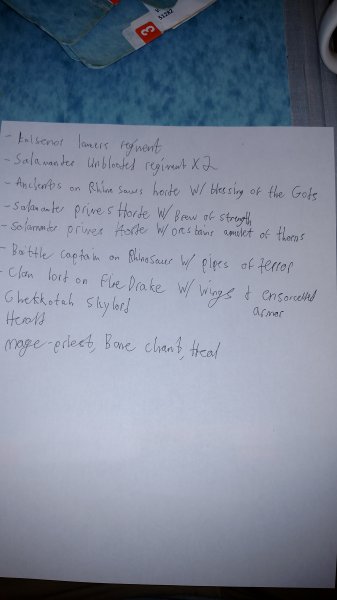 3
51282
- lancers regment
- Salamander Unblooded regiment X2
- Ancients on Rhinosaurs horde w/ blessing of the Gods
- Salamander primes Horde w/ Brew of strength
- Salamander primes Horde w/ amulet of thorns
- Battle captain on Rhinosaur w/ pipes of terror
- Clan lord on Fire Drake w/ wings & ensorcelled
armor
Ghekkotah skylord
Herald
mage-priest, Bane chant, Heal